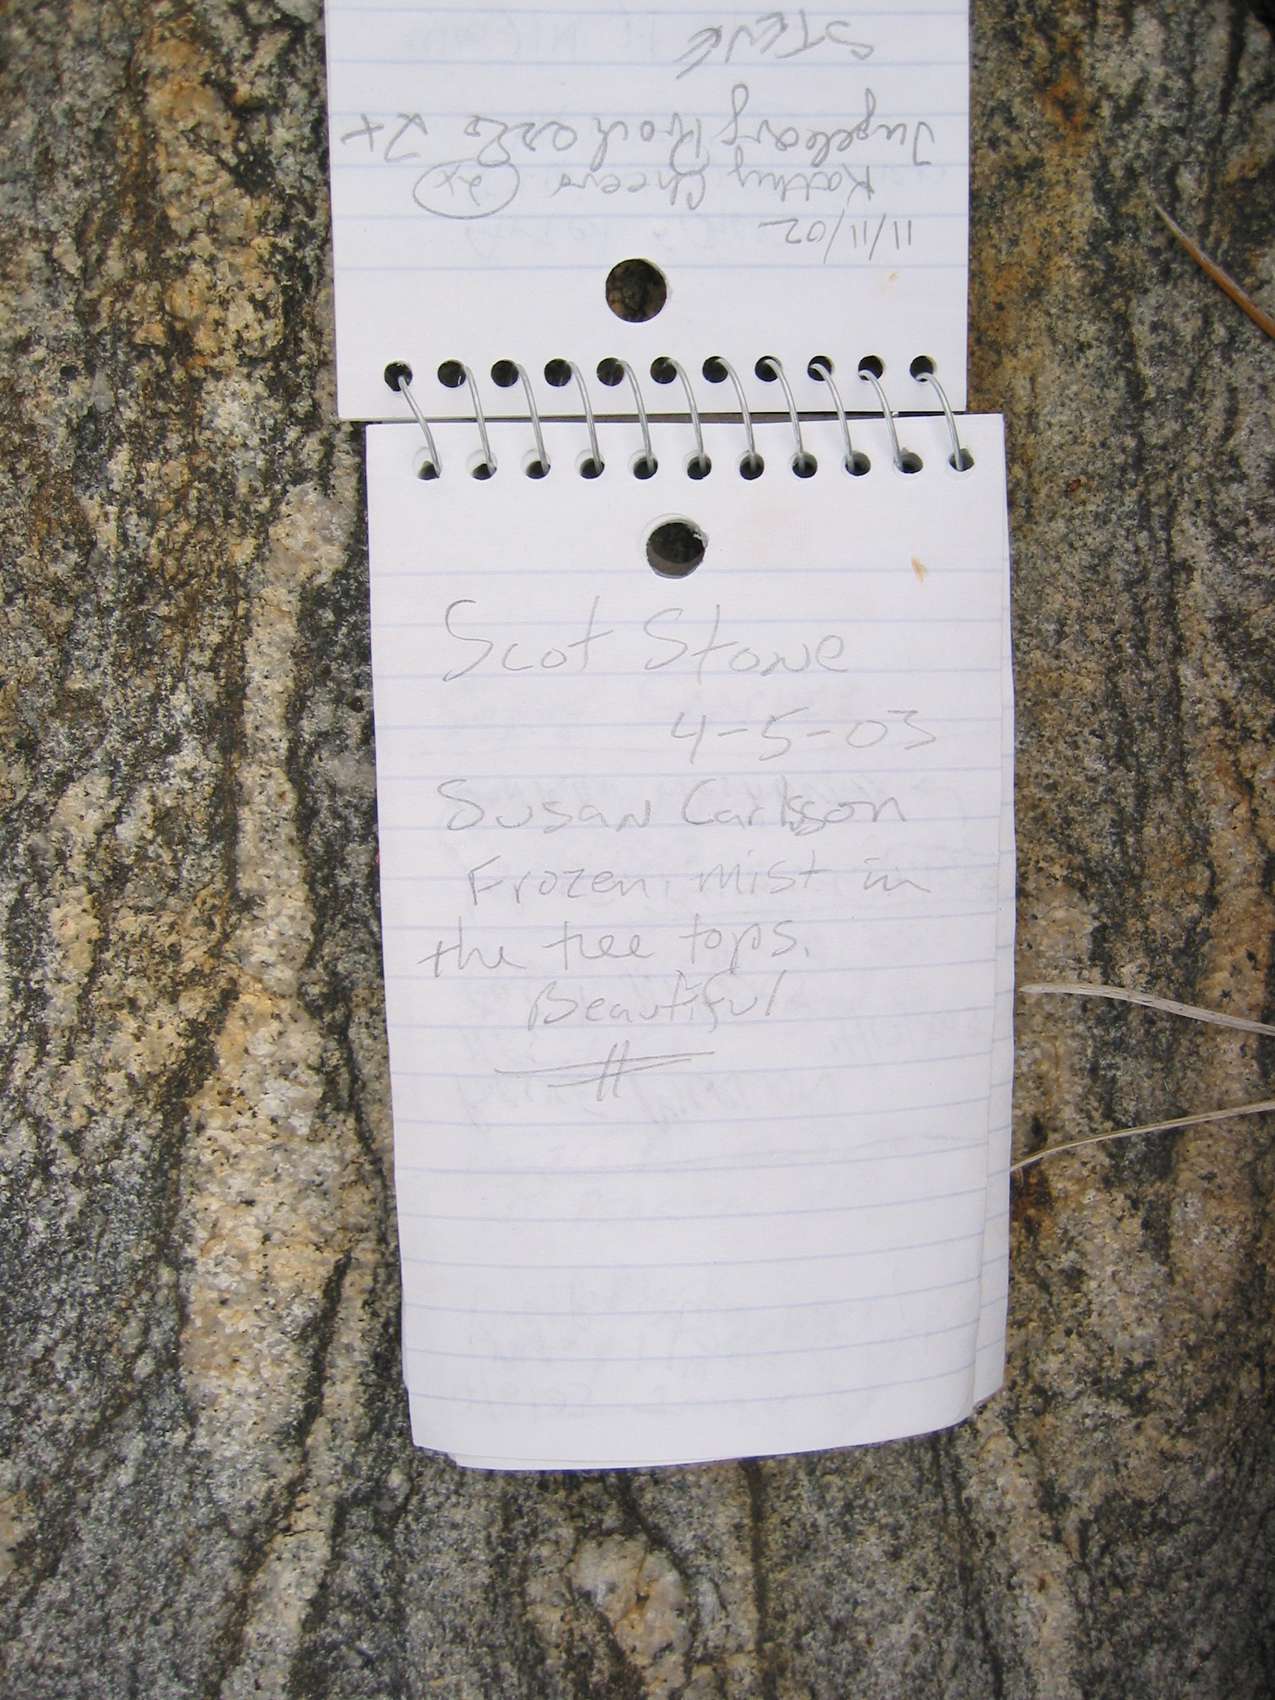 11/11/02
Kathy Cheers 2x
2x
STEVE
Scot Stone
4-5-03
Susan Carlsson
Frozen mist in
the tree tops.
Beautiful